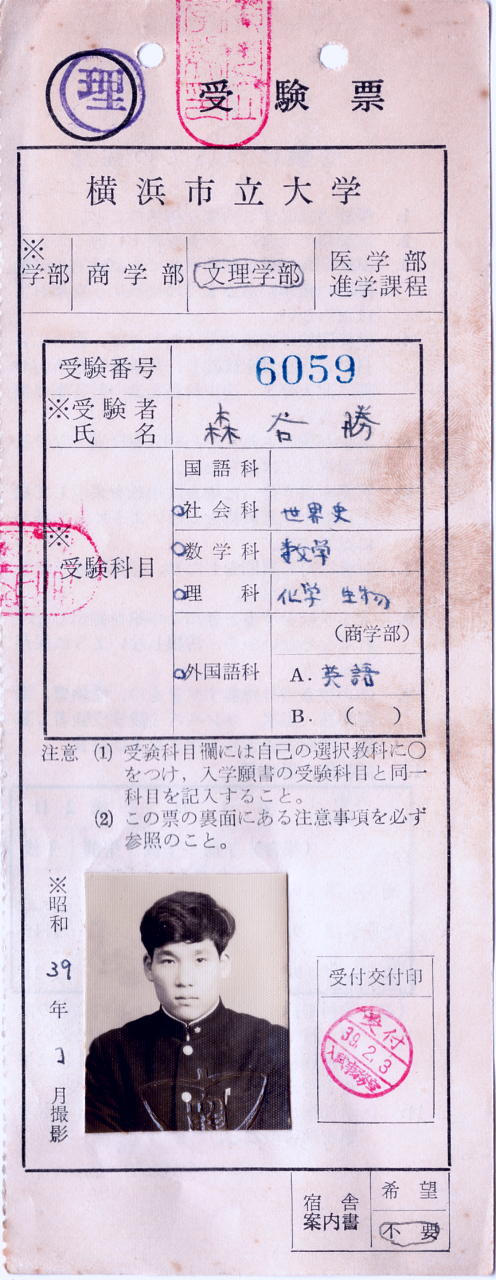 理
受験票
横浜市立大学
※学部 商学部 文理学部 医学部進学課程
受験番号 6059
※受験者氏名 森谷勝
※受験科目
国語科
社会科 世界史
数学科 数学
理科 化学 生物
(商学部)
外国語科 A. 英語
B. ( )
注意 (1) 受験科目欄には自己の選択教科に○
をつけ,入学願書の受験科目と同一
科目を記入すること。
(2) この票の裏面にある注意事項を必ず
参照のこと。
※昭和39年 月撮影
受付交付印
受付
39.2.3
宿舎案内書 希望
不要